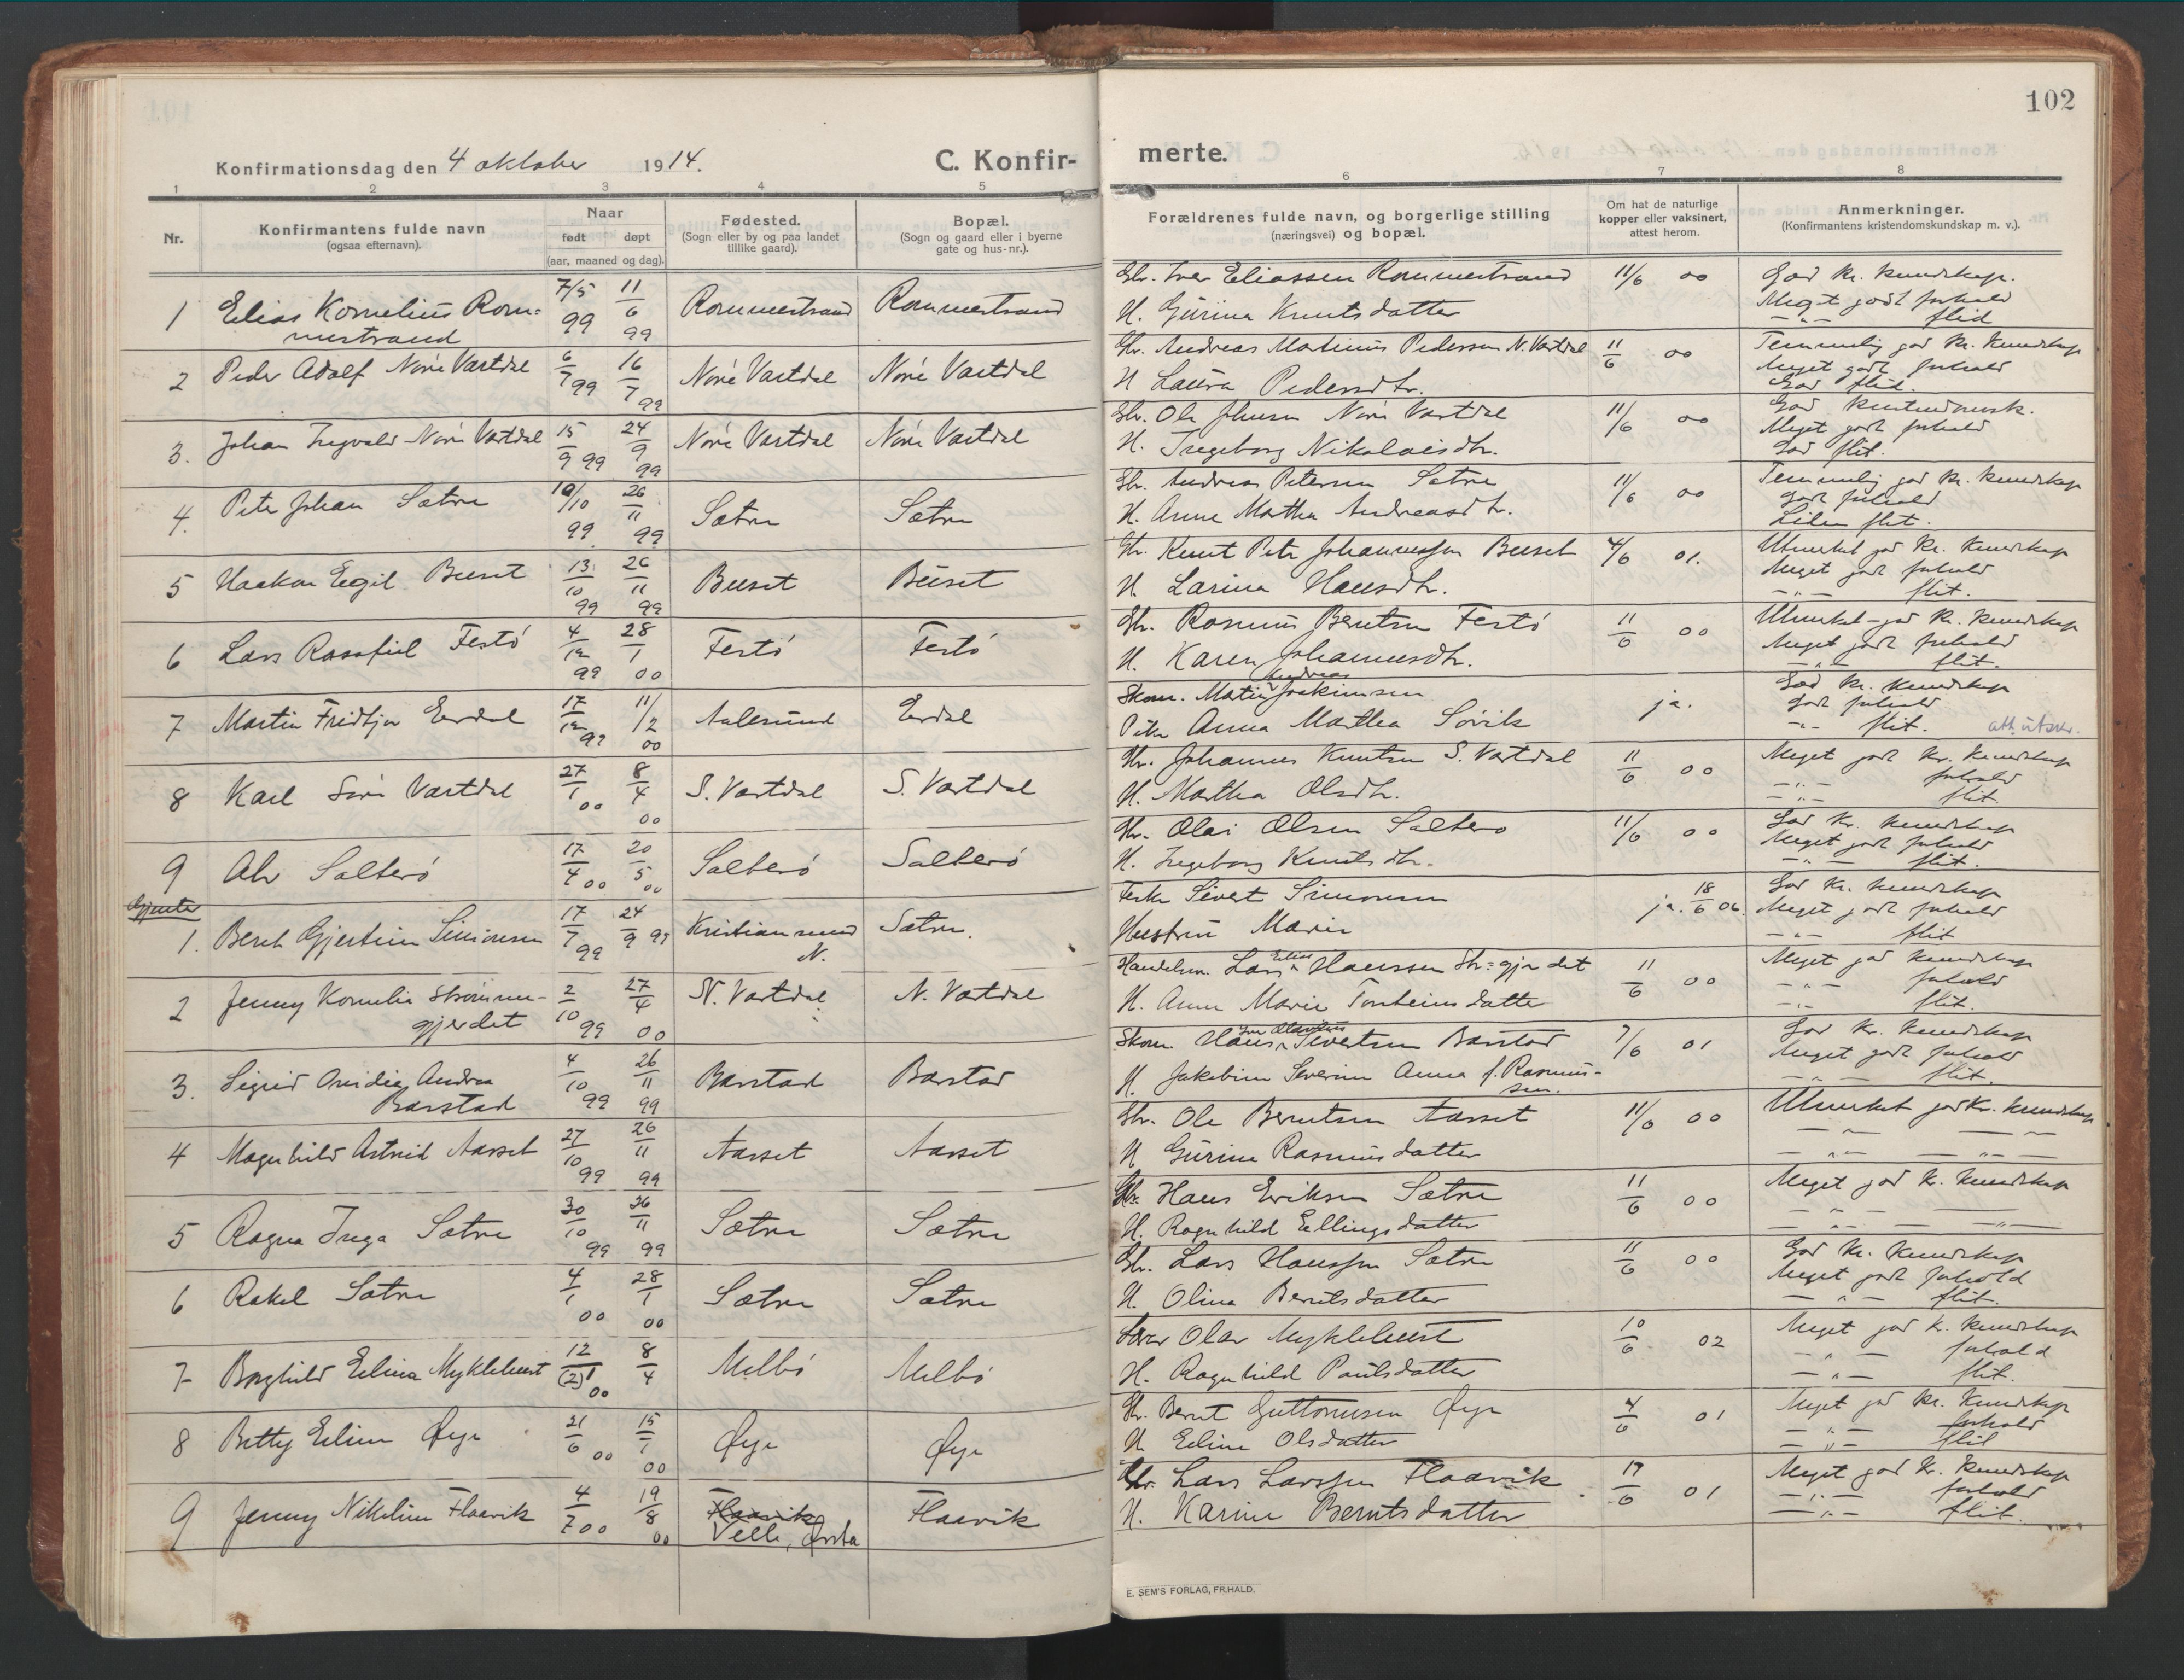 102
Konfirmationsdag den 4 oktober 1914.
C. Konfir-
merte.
1 2 3 4 5 6 7 8
Nr.
Konfirmantens fulde navn
(ogsaa efternavn).
Naar
født døpt
(aar, maaned og dag).
Fødested.
(Sogn eller by og paa landet
tillike gaard).
Bopæl.
(Sogn og gaard eller i byerne
gate og hus-nr.).
Forældrenes fulde navn, og borgerlige stilling
(næringsvei) og bopæl.
Om hat de naturlige
kopper eller vaksinert,
attest herom.
Anmerkninger.
(Konfirmantens kristendomskundskap m. v.).
1 Elias Kornelius Rom-
mestrand
7/5 99 11/6 99 Rommestrand Rommestrand
Gbr. Iver Eliassen Rommestrand 11/6 00 God kr. kundskap.
H. Gürina Knutsdatter Meget godt forhold
—"— flid
2 Peder Adolf Nore Vartdal 6/7 99 16/7 99 Nore Vartdal Nore Vartdal
Gbr. Andreas Martinus Pedersen N. Vartdal 11/6 00 Temmelig god kr. kundskap
H Laura Pedersdtr. Meget godt forhold
God flid.
3. Johan Ingvald Nore Vartdal 15/9 99 24/9 99 Nore Vartdal Nore Vartdal
Gbr. Ole Johnsen Nore Vartdal 11/6 00 God kristendomsk.
H. Ingeborg Nikolaisdtr. Meget godt forhold
God flit.
4. Peter Johan Sætre 10/10 99 26/11 99 Sætre Sætre
Gbr. Andreas Petersen Sætre 11/6 00 Temmelig god kr. kundskap
H. Anne Martha Andreasdtr. Godt forhold
Liden flit.
5 Haakon Eegil Buset 13/10 99 26/11 99 Buset Büset
Gbr. Knut Peter Johannessen Buset 4/6 01. Utmerket god kr. kundskap
H Larina Hansdtr. Meget godt forhold
—"— flit.
6 Lars Rasofiel Festö 4/12 99 28/1 00 Festö Festö
Gbr. Rasmus Berntsen Festö 11/6 00 Utmerket god kr. kundskap
H. Karen Johannesdtr. Meget godt forhold
—"— flit.
7 Martin Fridtjov Eerdal 17/12 99 11/2 00 Aalesund Eerdal
Skom. Martin Andreas Joakimsen ja. God kr. kundskap
Pike Anna Martha Sövik Godt forhold
—"— flit. att. utskr.
8 Karl Søre Vartdal 27/1 00 8/4 00 S. Vartdal S. Vartdal
Gbr. Johannes Knutsen S. Vartdal 11/6 00 Meget god kr. kundskap
H. Martha Olsdtr. —"— forhold
—"— flit.
9 Alv Salterö 17/4 00 20/5 00 Salterö Salterö
Gbr. Olai Olsen Salterö 11/6 00 God kr. kundskap
H. Ingeborg Knutsdtr. Meget godt forhold
—"— flit.
Gjenter
1. Beret Gjertine Simonsen 17/7 99 24/9 99 Kristiansund N. Sætre.
Fisker Sivert Simonsen ja. 18/6 06. God kr. kundskap
Hustru Marie Meget godt forhold
—"— flit
2 Jenny Kornelia Strømme-
gjerdet
2/10 99 27/4 00 N. Vartdal N. Vartdal
Handelsm. Lars Elias Hanssen Str=gjerdet 11/6 00 Meget god kundskap
H. Anne Marie Torsteinsdatter —"— forhold
—"— flit.
3. Sigrid Ovidia Andrea
Barstad
4/10 99 26/11 99 Barstad Barstad
Skom. Hans Sivertsen Barstad 7/6 01 God kr. kundskap
H. Jakobine Severine Anna f. Rasmus- Meget godt forhold
sen. —"— flit.
4 Magnhild Astrid Aarset 27/10 99 26/11 99 Aarset Aarset
Gbr. Ole Berntsen Aarset 11/6 00 Utmerket god kr. kundskap
H Gürina Rasmusdatter —"— —"—
5 Ragna Inga Sætre 30/10 99 26/11 99 Sætre Sætre
Gbr. Hans Eriksen Sætre 11/6 00 Meget god kr. kundskap
H. Ragnhild Eellingsdatter —"— —"—
6 Rakel Sætre 4/1 00 28/1 00 Sætre Sætre
Gbr. Lars Hanssen Sætre 11/6 00 God kr. kundskap
H. Olina Berntsdatter Meget godt forhold
—"— flit.
7 Borghild Eelina Myklebust 12/(2)1 00 8/4 Melbö Melbö
Lærer Olav Myklebust 10/6 02 Meget god k. kundskap
H. Ragnhild Paulsdatter —"— forhold
—"— flit.
8 Betty Eeline Øye 21/6 00 15/7 00 Øye Øye
Gbr. Bernt Guttormsen Øye 4/6 01 Meget god kr. kundskap
H Eeline Olsdatter —"— forhold
—"— flit
9 Jenny Nikoline Flaavik 4/7 00 19/8 00 Flaavik Velle, Ørsta Flaavik
Gbr. Lars Larssen Flaavik 17/6 01 Meget god kr. kundskap
H. Karine Berntsdatter —"— forhold
—"— flit.
E. SEM'S FORLAG, FR.HALD.